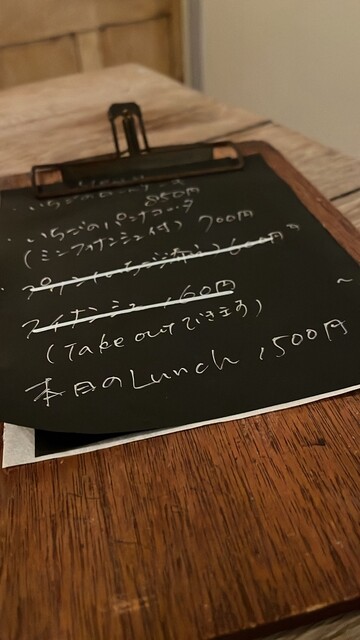 850円
・いちごのパンナコッタ
(ミニフィナンシェ付) 700円
600円
フィナンシェ 160円
(Take outできます)
本日のLunch 1,500円~